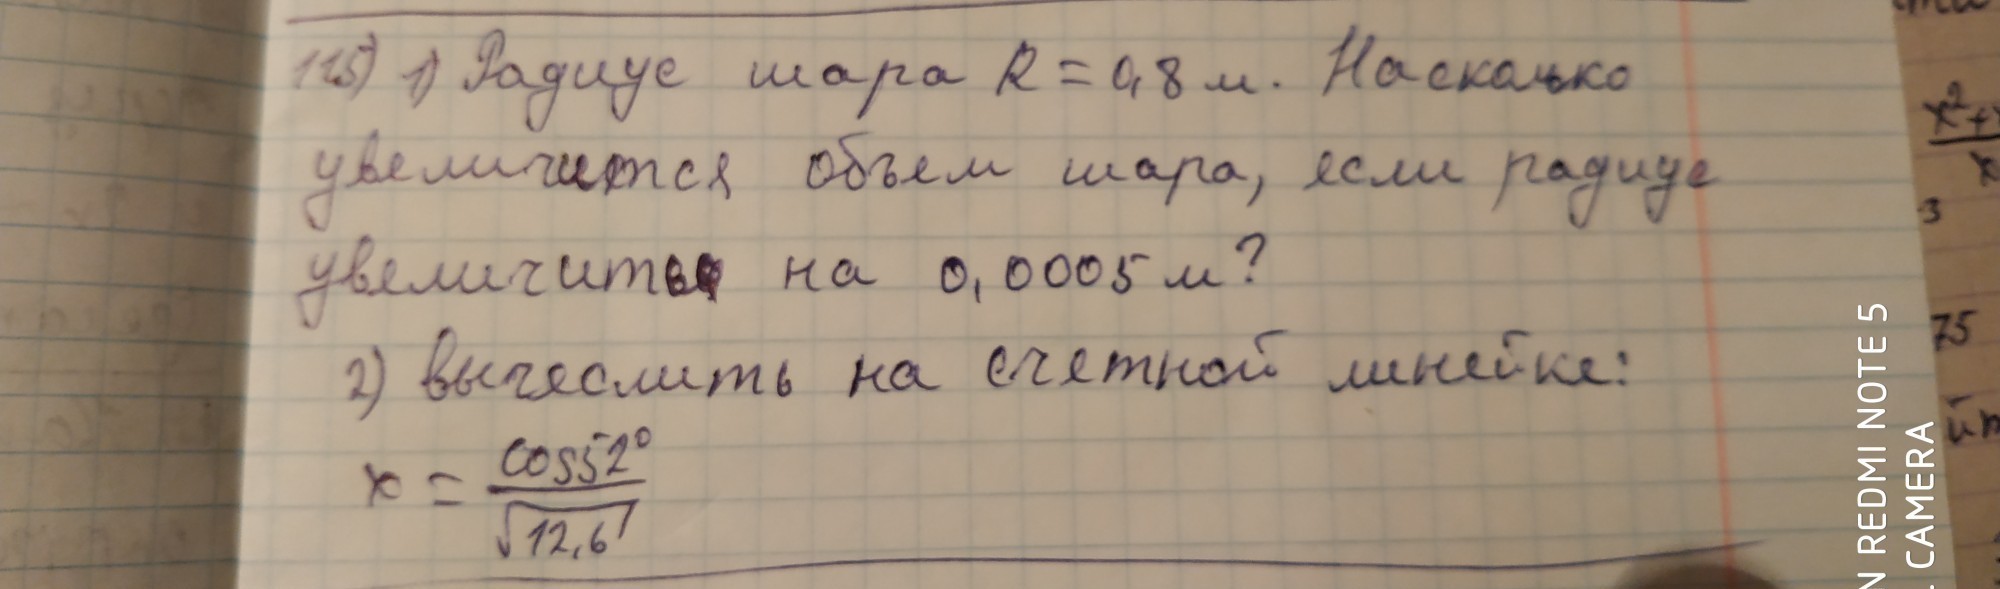 115) 1) Радиус шара R = 0,8 м. Насколько
увеличится объем шара, если радиус
увеличить на 0,0005 м?
2) вычеслить на счетной линейке:
x = cos52° / √12,6
x²+
x
3
75
йт
N REDMI NOTE 5
CAMERA